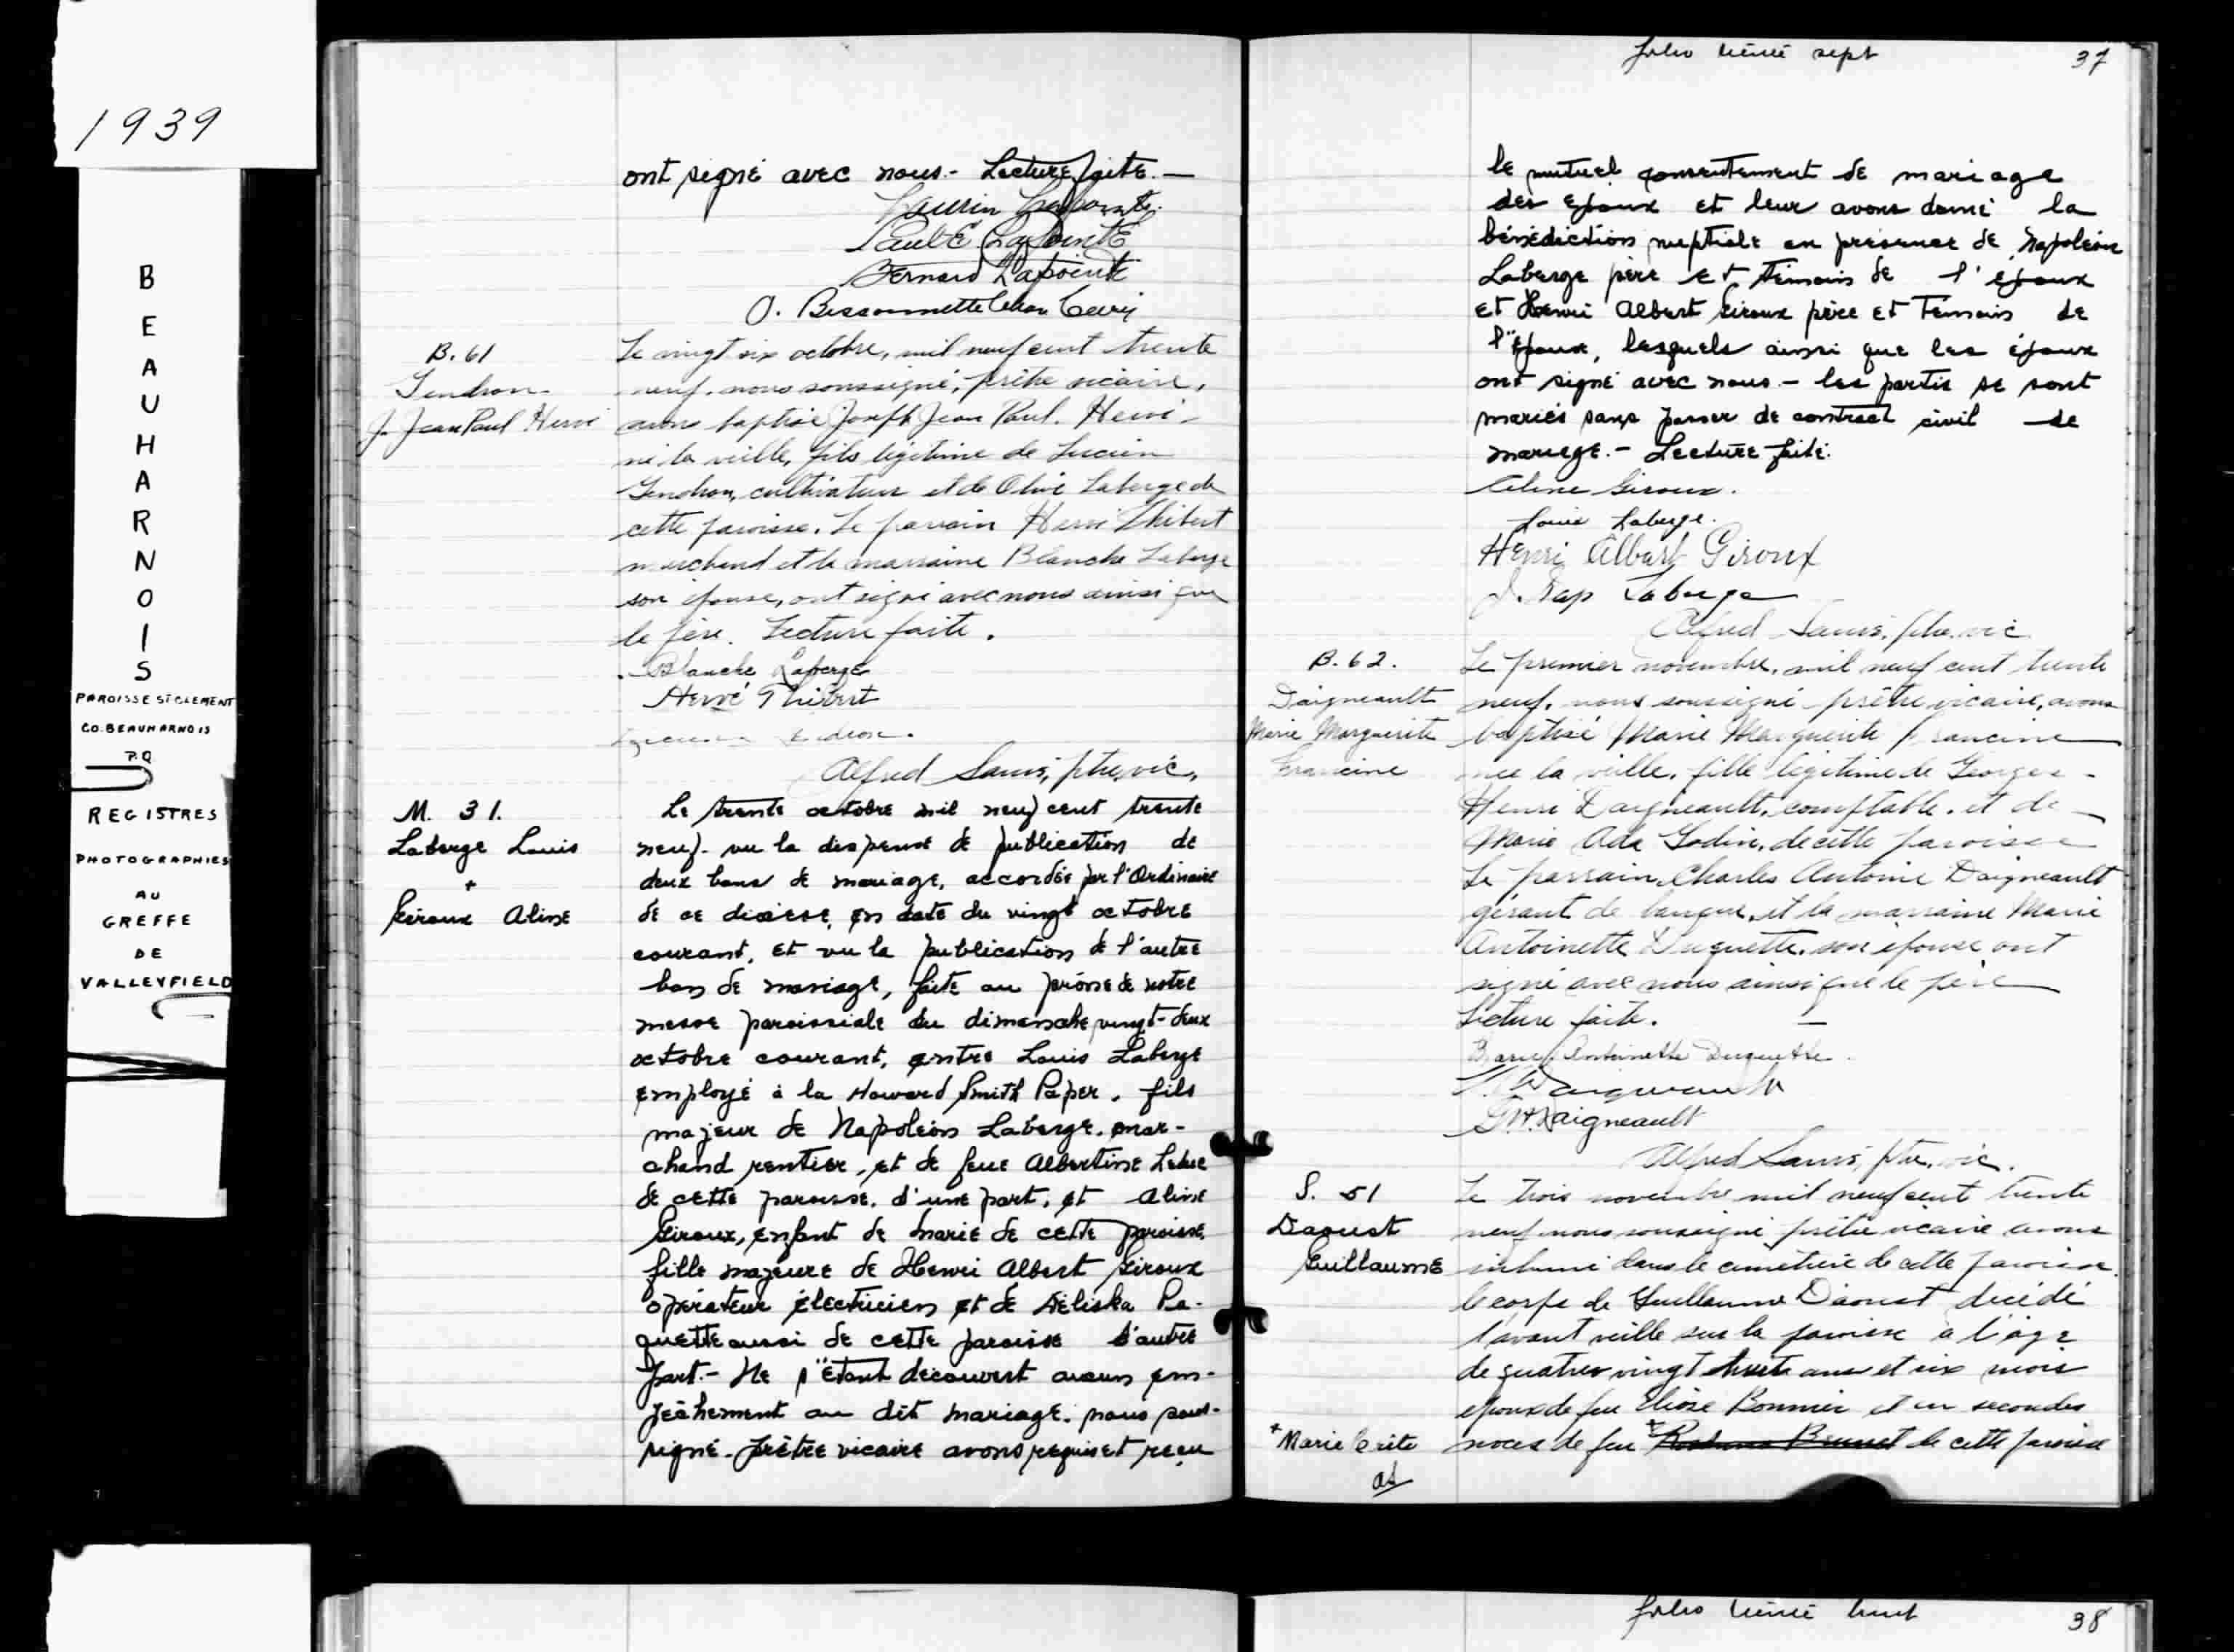 1939
B
E
A
U
H
A
R
N
O
I
S
PAROISSE ST CLEMENT
CO. BEAUHARNOIS
P.Q
REGISTRES
PHOTOGRAPHIES
AU
GREFFE
DE
VALLEYFIELD
ont signé avec nous.- Lecture faite.-
Laurin Lapointe
Paul E Lapointe
Bernard Lapointe
O. Bissonnette Chan Curé
B. 61
Gendron
J. Jean Paul Hervé
Le vingt six octobre, mil neuf cent trente
neuf, nous soussigné, prêtre vicaire,
avons baptisé Joseph Jean Paul Hervé
né la veille, fils légitime de Lucien
Gendron, cultivateur et de Olive Laberge de
cette paroisse. Le parrain Hervé Thibert
marchand et la marraine Blanche Laberge
son épouse, ont signé avec nous ainsi que
le père. Lecture faite.
Blanche Laberge
Hervé Thibert
Alfred Sauvé, ptre, vic.
M. 31.
Laberge Louis
+
Giroux Aline
Le trente octobre mil neuf cent trente
neuf. vu la dispense de publication de
deux bans de mariage, accordée par l'Ordinaire
de ce diocèse, en date du vingt octobre
courant, et vu la publication de l'autre
ban de mariage, faite au prône de notre
messe paroissiale du dimanche vingt-deux
octobre courant, entre Louis Laberge
employé à la Howard Smith Paper, fils
majeur de Napoléon Laberge, mar-
chand rentier, et de feue Albertine Leduc
de cette paroisse, d'une part, et Aline
Giroux, enfant de marie de cette paroisse,
fille majeure de Henri Albert Giroux
opérateur électricien et de Déliska Pa-
quette aussi de cette paroisse d'autre
part.- Ne s'étant découvert aucun em-
pêchement au dit mariage, nous sous-
signé, prêtre vicaire avons requis et reçu
folio trente sept 37
le mutuel consentement de mariage
des époux et leur avons donné la
bénédiction nuptiale en présence de Napoléon
Laberge père et témoin de l'époux
et Henri Albert Giroux père et témoin de
l'épouse, lesquels ainsi que les époux
ont signé avec nous - les partis se sont
mariés sans passer de contract civil de
mariage.- Lecture faite.
Aline Giroux.
Louis Laberge.
Henri Albert Giroux
J. Nap Laberge
Alfred Sauvé, ptre. vic.
B. 62.
Daigneault
Marie Marguerite
Francine
Le premier novembre, mil neuf cent trente
neuf, nous soussigné prêtre vicaire, avons
baptisé Marie Marguerite Francine
née la veille, fille légitime de Georges-
Henri Daigneault, comptable, et de
Marie Ada Godin, de cette paroisse
Le parrain Charles Antoine Daigneault
gérant de banque, et la marraine Marie
Antoinette Duquette, son épouse ont
signé avec nous ainsi que le père
Lecture faite.
Marie Antoinette Duquette.
Daigneault
G.H. Daigneault
Alfred Sauvé, ptre, vic.
S. 51
Daoust
Guillaume
Le trois novembre mil neuf cent trente
neuf nous soussigné prêtre vicaire avons
inhumé dans le cimetière de cette paroisse
le corps de Guillaume Daoust décédé
l'avant veille sur la paroisse à l'âge
de quatre vingt huit ans et six mois
époux de feu Elise Bonnier et en secondes
noces de feu + Brunet de cette paroisse
+ Marie Crête
AS
folio trente huit 38